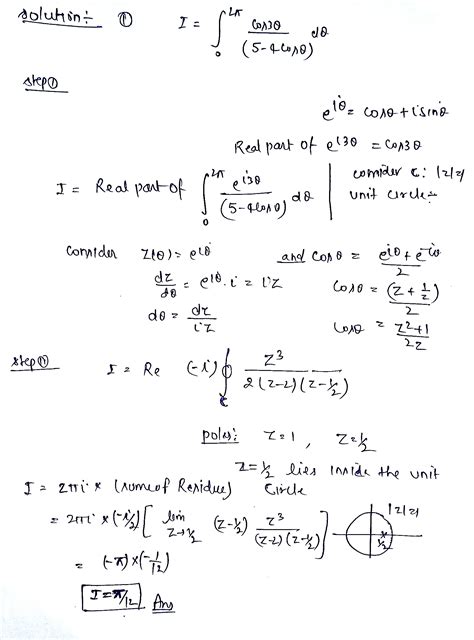 solution:- ① I = ∫₀^{2π} cos3θ / (5-4cosθ) dθ
step①
e^{iθ} = cosθ + i sinθ
Real part of e^{i3θ} = cos3θ
I = Real part of ∫₀^{2π} e^{i3θ} / (5-4cosθ) dθ | consider c: |z|=1
unit circle:-
Consider z(θ) = e^{iθ} and cosθ = (e^{iθ} + e^{-iθ}) / 2
dz/dθ = e^{iθ}.i = iz cosθ = (z + 1/z) / 2
dθ = dz/iz cosθ = (z²+1) / 2z
step① I = Re (-i) ∮_c z³ / 2(z-2)(z-1/2)
poles: z=1, z=1/2
z=1/2 lies inside the unit
circle
I = 2πi × (sum of Residue)
= 2πi × (-i/2) [ lim_{z→1/2} (z-1/2) z³ / (z-2)(z-1/2) ] |z|=1
1/2
= (-π) × (-1/12)
I = π/12 Ans